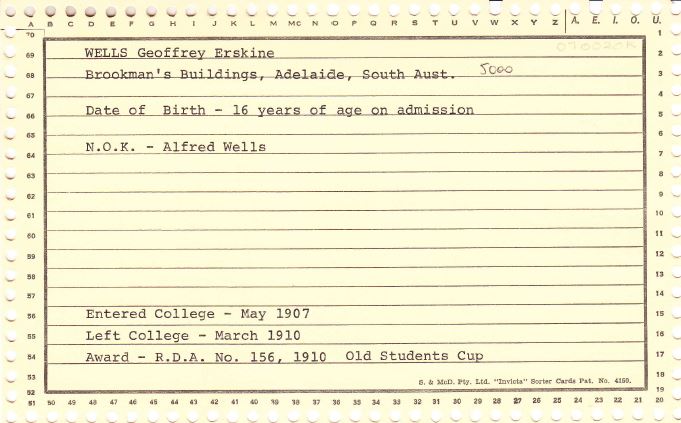 A B C D E F G H I J K L M MC N O P Q R S T U V W X Y Z A. E. I. O. U.
70 1
WELLS Geoffrey Erskine 070020K
69 2
Brookman's Buildings, Adelaide, South Aust. 5000
68 3
67 4
Date of Birth - 16 years of age on admission
66 5
65 6
N.O.K. - Alfred Wells
64 7
63 8
62 9
61 10
60 11
59 12
58 13
57 14
Entered College - May 1907
56 15
Left College - March 1910
55 16
Award - R.D.A. No. 156, 1910 Old Students Cup
54 17
53 18
S. & McD. Pty. Ltd. "Invicta" Sorter Cards Pat. No. 4159.
52 19
51 50 49 48 47 46 45 44 43 42 41 40 39 38 37 36 35 34 33 32 31 30 29 28 27 26 25 24 23 22 21 20